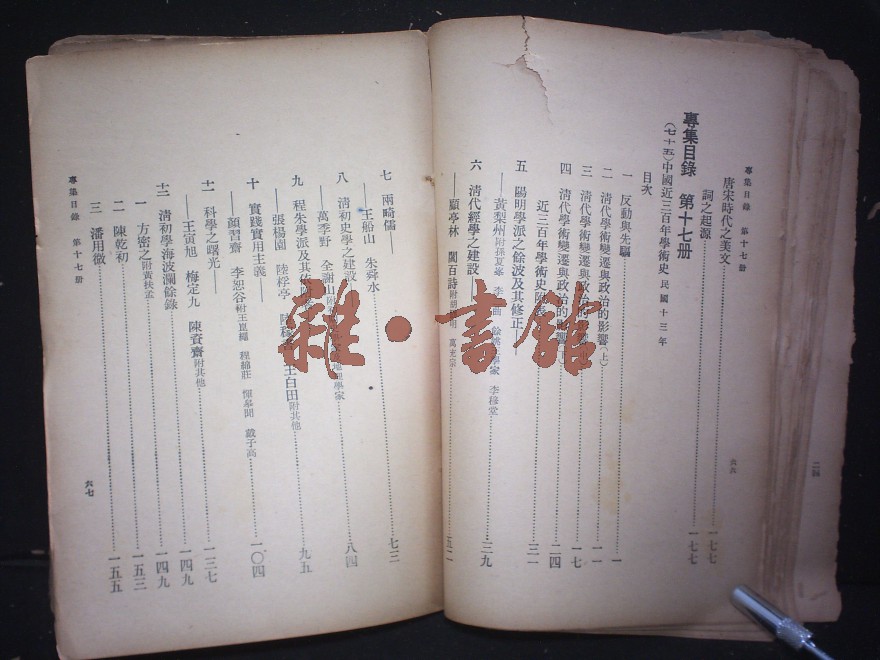 專集目錄 第十七册
六六
唐宋時代之美文……一七七
詞之起源……一七七
專集目錄 第十七册
(七十五)中國近三百年學術史 民國十三年
目次
一 反動與先驅……一
二 清代學術變遷與政治的影響(上)……一一
三 清代學術變遷與政治的影響……一七
四 清代學術變遷與政治的影響……二四
近三百年學術史附表……三一
五 陽明學派之餘波及其修正——
——黃梨州附孫夏峯 李 曲 餘姚 家 李穆堂……三九
六 清代經學之建設——
——顧亭林 閻百詩附胡 明 萬充宗
七 兩畸儒——
——王船山 朱舜水……七三
八 清初史學之建設——
——萬季野 全謝山附 學家……八四
九 程朱學派及其
——張楊園 陸桴亭 陸 王白田附其他……九五
十 實踐實用主義——
——顏習齋 李恕谷附王崑繩 程綿莊 惲皋聞 戴子高……一〇四
十一 科學之曙光——
——王寅旭 梅定九 陳資齋附其他……一三七
十二 清初學海波瀾餘錄……一四九
一 方密之附黃扶孟……一四九
二 陳乾初……一五三
三 潘用微……一五五
專集目錄 第十七册
六七
雜·書館